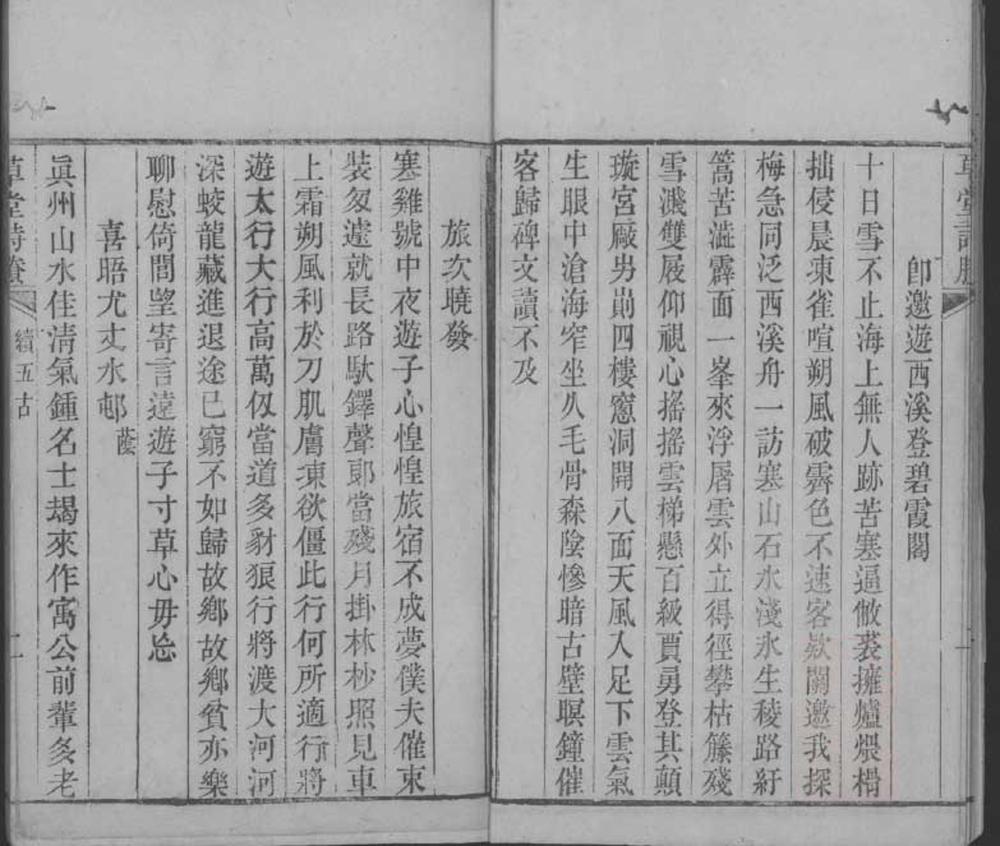 卽邀遊西溪登碧霞閣
十日雪不止海上無人跡苦寒逼敝裘擁爐煨榾
拙侵晨凍雀喧朔風破霽色不速客欵關邀我探
梅急同泛西溪舟一訪寒山石水淺氷生稜路紆
篙苦澁霹面一峯來浮屠雲外立得徑攀枯籐殘
雪濺雙屐仰視心搖搖雲梯懸百級賈勇登其顛
璇宮厰岃崱四樓窻洞開八面天風入足下雲氣
生眼中滄海窄坐久毛骨森陰慘暗古壁暝鐘催
客歸碑文讀不及
旅次曉發
寒雞號中夜遊子心惶惶旅宿不成夢僕夫催束
裝匆遽就長路馱鐸聲郞當殘月掛林杪照見車
上霜朔風利於刀肌膚凍欲僵此行何所適行將
遊太行大行高萬仭當道多豺狼行將渡大河河
深蛟龍藏進退途已窮不如歸故鄕故鄕貧亦樂
聊慰倚閭望寄言遠遊子寸草心毋忘
喜晤尤丈水邨蔭
眞州山水佳淸氣鍾名士朅來作寓公前輩多老
草堂詩賸
續五古
二